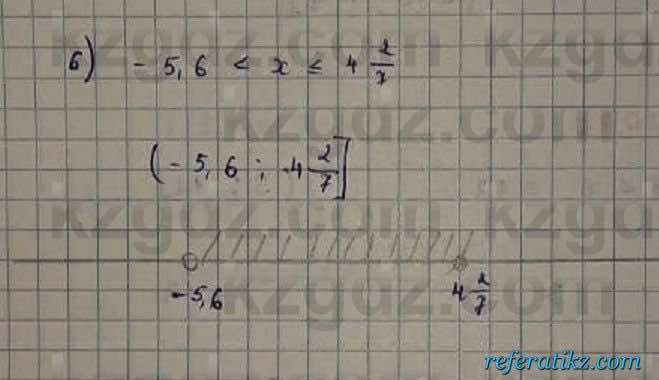 б) - 5,6 < x ≤ 4 2/7
kzgdz.com
(- 5,6 ; 4 2/7]
kzgdz.com
-5,6 4 2/7
referatikz.com